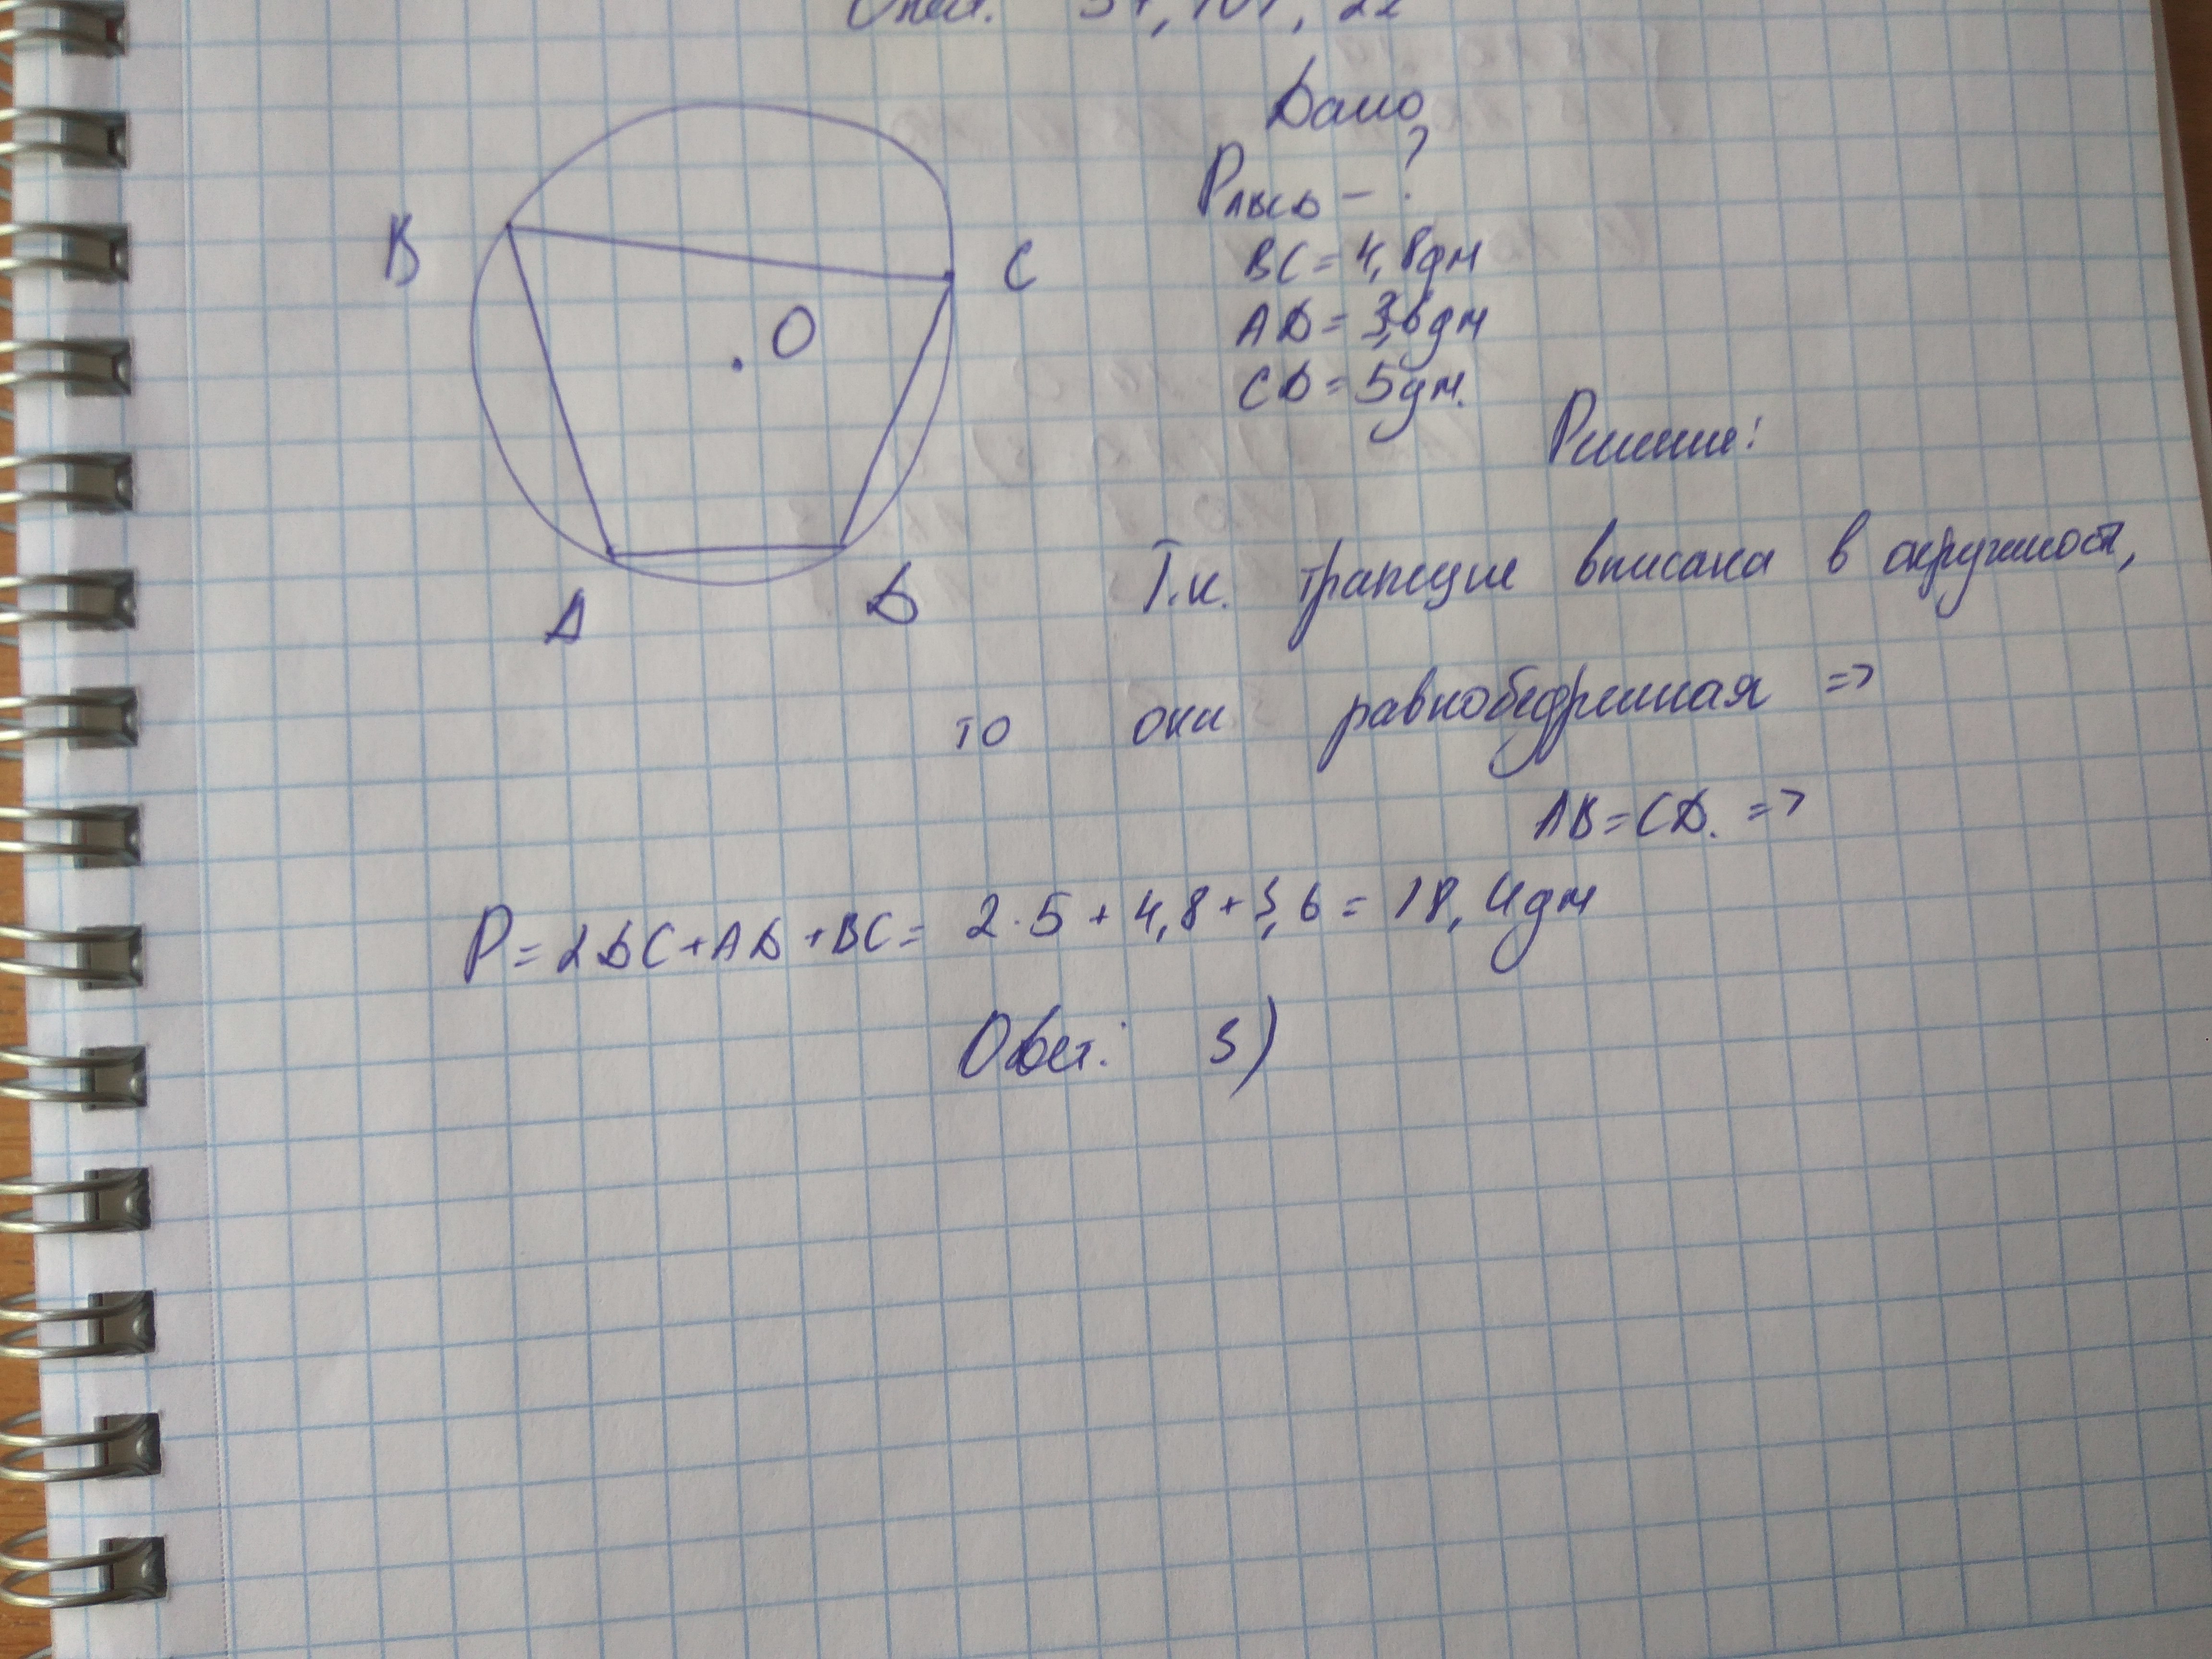 Дано
PABCD - ?
BC = 4,8дм
AD = 3,6дм
CD = 5дм.
B
C
O
A
D
Решение:
Т.к. трапеция вписана в окружность,
то она равнобедренная =>
AB = CD. =>
P = 2DC + AD + BC = 2·5 + 4,8 + 3,6 = 18,4дм
Ответ: 3)